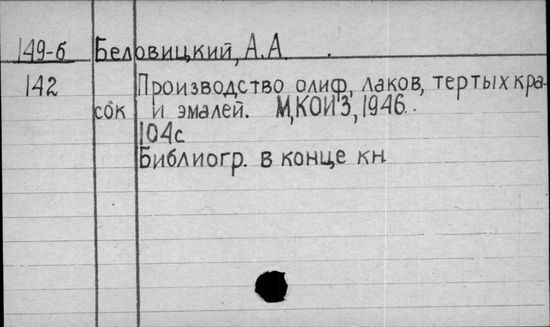 149-б Беловицкий, А.А.
142 Производство олиф, лаков, тертых кра-
сок и эмалей. М, КОИЗ, 1946.
104с
Библиогр. в конце кн.